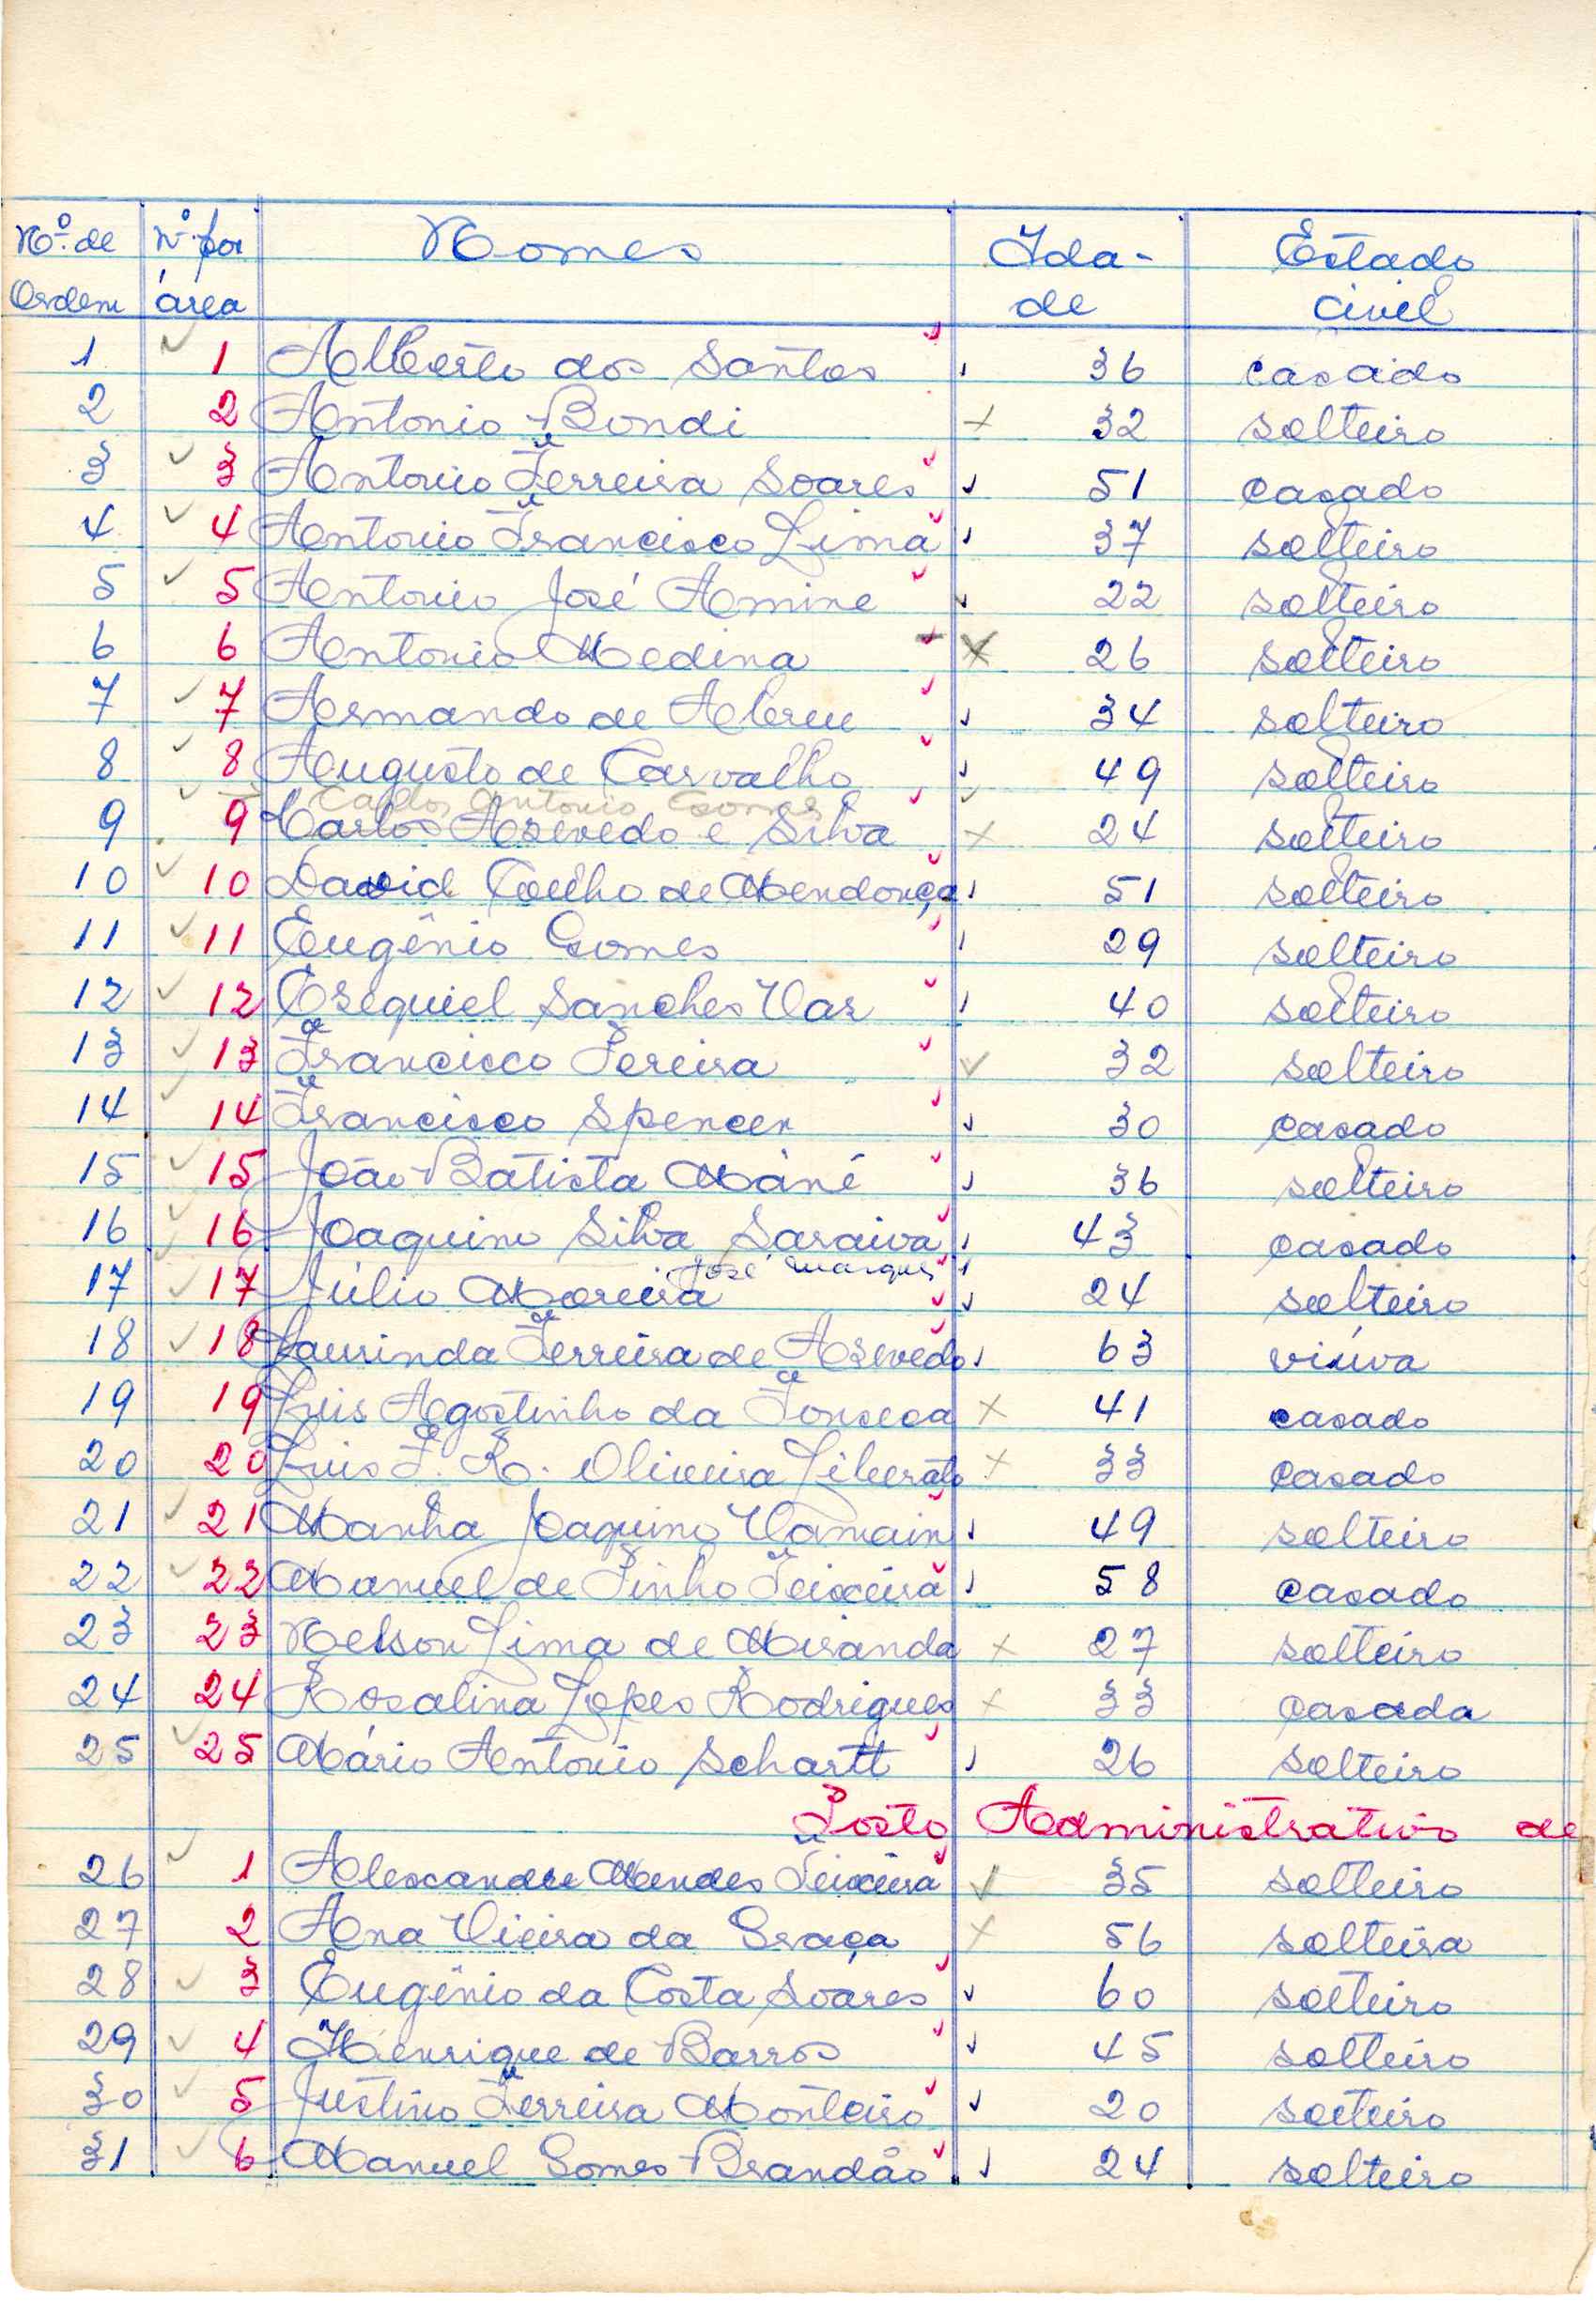 Nº de Nº por Nomes Ida- Estado
Ordem área de Civil
1 1 Alberto dos Santos 36 casado
2 2 Antonio Bondi 32 solteiro
3 3 Antonio Ferreira Soares 51 casado
4 4 Antonio Francisco Lima 37 solteiro
5 5 Antonio José Amine 22 solteiro
6 6 Antonio Medina 26 solteiro
7 7 Armando de Abreu 34 solteiro
8 8 Augusto de Carvalho 49 solteiro
Carlos Antonio Gomes
9 9 Carlos Azevedo e Silva 24 solteiro
10 10 David Coelho de Mendonça 51 solteiro
11 11 Eugênio Gomes 29 solteiro
12 12 Ezequiel Sanches Vaz 40 solteiro
13 13 Francisco Pereira 32 solteiro
14 14 Francisco Spencer 30 casado
15 15 João Batista Mané 36 solteiro
16 16 Joaquim Silva Saraiva 43 casado
José Marques
17 17 Júlio Moreira 24 solteiro
18 18 Laurinda Ferreira de Azevedo 63 viúva
19 19 Luis Agostinho da Fonseca 41 casado
20 20 Luis F. R. Oliveira Liberato 33 casado
21 21 Manha Joaquim Vamain 49 solteiro
22 22 Manuel de Pinho Teixeira 58 casado
23 23 Nelson Lima de Miranda 27 solteiro
24 24 Rosalina Lopes Rodrigues 33 casada
25 25 Mário Antonio Schartt 26 solteiro
Posto Administrativo de
26 1 Alexandre Mendes Teixeira 35 solteiro
27 2 Ana Vieira da Graça 56 solteira
28 3 Eugênio da Costa Soares 60 solteiro
29 4 Henrique de Barros 45 solteiro
30 5 Justino Ferreira Monteiro 20 solteiro
31 6 Manuel Gomes Brandão 24 solteiro